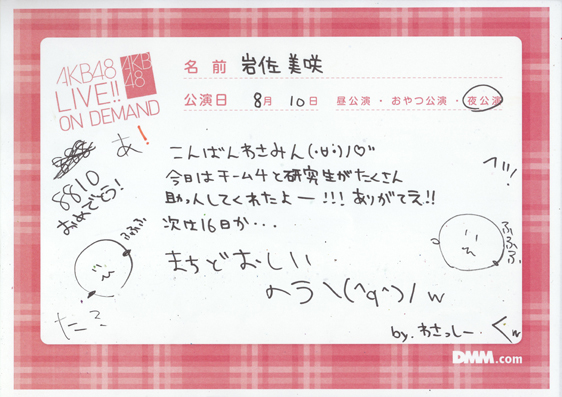 AKB48
LIVE!!
ON DEMAND
AKB
48
名前 岩佐美咲
公演日 8月 10日 昼公演・おやつ公演・夜公演
あ!
8810
おめでとう!
こんばんわさみん(・∀・)ノ♡"
今日はチーム4と研究生がたくさん
助っ人してくれたよー!!!ありがてえ!!
次は16日か・・・
まちどおしい
のう\(^q^)/w
へ"!
ふふふ
ふふふ
た?
by.わさっしー.
DMM.com